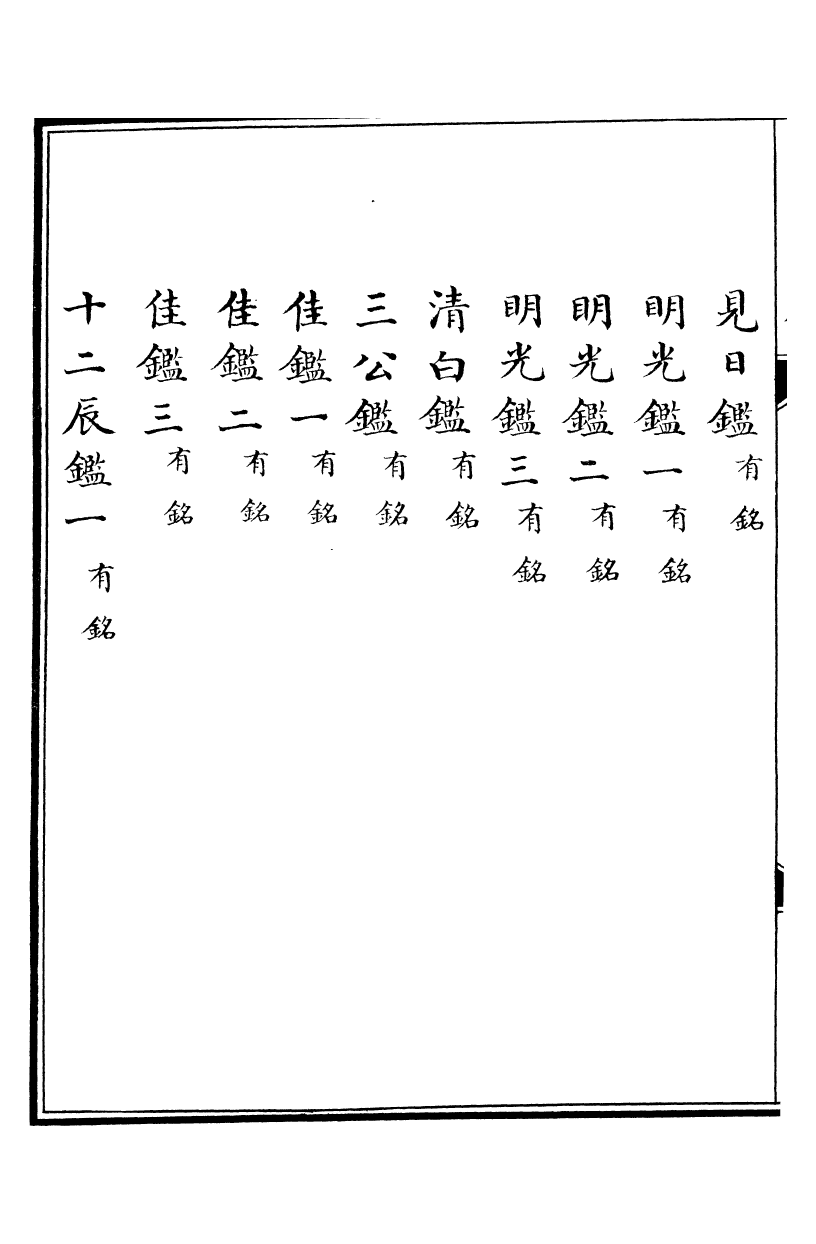 見日鑑有銘
明光鑑一有銘
明光鑑二有銘
明光鑑三有銘
清白鑑有銘
三公鑑有銘
佳鑑一有銘
佳鑑二有銘
佳鑑三有銘
十二辰鑑一有銘